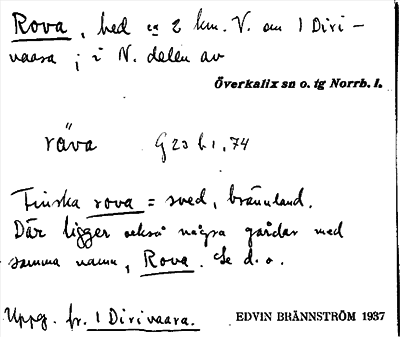 Rova, hed ca 2 km. V. om 1 Diri-
vaara ; i N. delen av
Överkalix sn o. tg Norrb. l.
räva G 23 b 1, 74
Finska rova = sved, brännland.
Där ligger också några gårdar med
samma namn, Rova. Se d. o.
Uppg. fr. 1 Dirivaara. EDVIN BRÄNNSTRÖM 1937